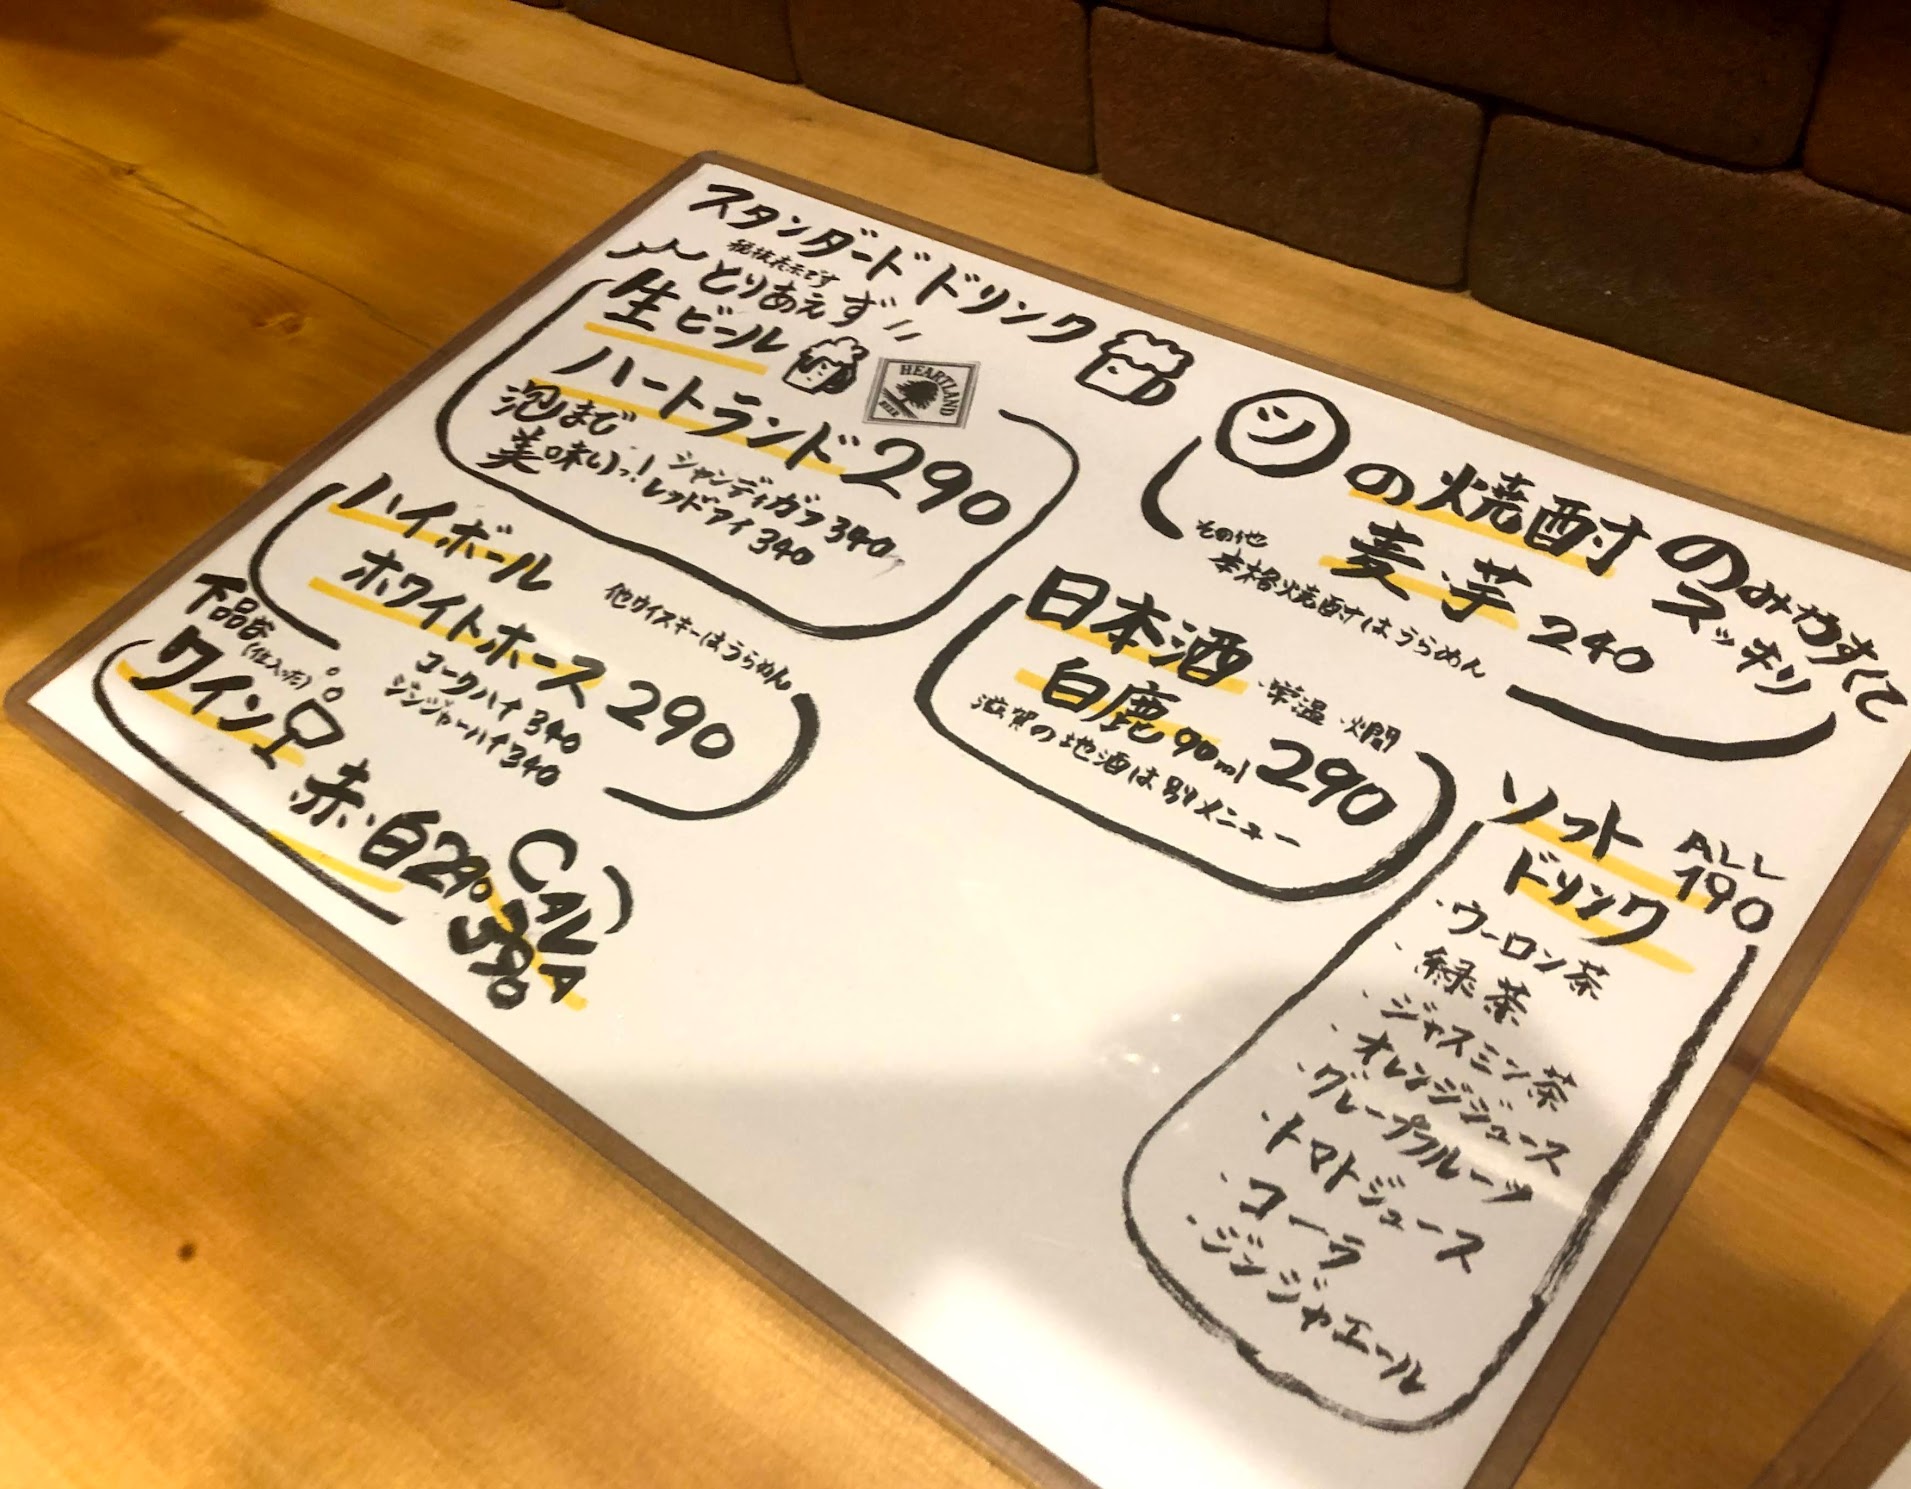 スタンダードドリンク
税抜表示です
とりあえず〃
生ビール
HEARTLAND
BEER
ハートランド 290
泡まで
美味いっ!
シャンディガフ 340
レッドアイ 340
ハイボール
他ウイスキーはうらめん
ホワイトホース 290
コークハイ 340
ジンジャーハイ 340
(仕入った)
ワイン
赤・白290
CAVA
390
ツの焼酎
のみやすくて
スッキリ
麦・芋 240
その他
本格焼酎はうらめん
日本酒 ・常温・燗
白鹿 90ml 290
滋賀の地酒は別メニュー
ソフト
ドリンク
ALL
190
・ウーロン茶
・緑茶
・ジャスミン茶
・オレンジジュース
・グレープフルーツ
・トマトジュース
・コーラ
・ジンジャエール